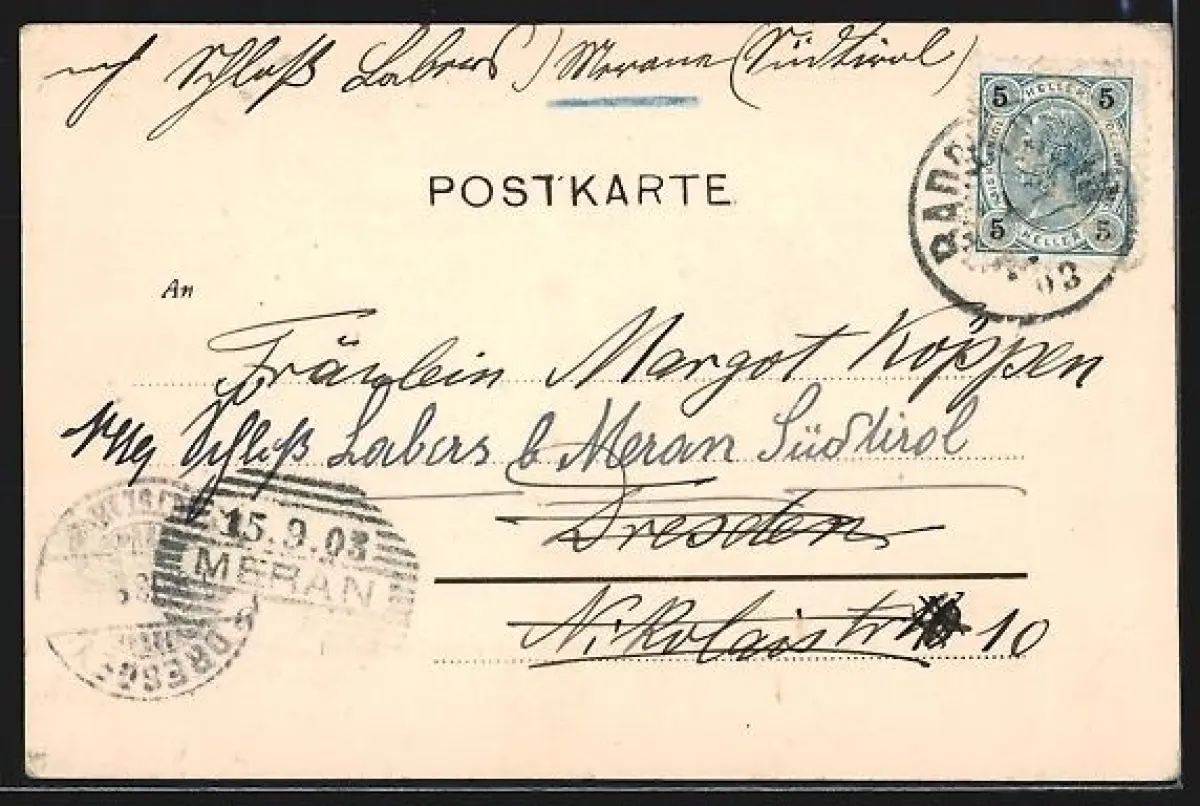 Schloß Labers) Meran (Südtirol)
5 HELLER 5
5 HELLER 5
BAD
03
POSTKARTE
An
Fräulein Margot Köppen
Schloß Labers b Meran Südtirol
Dresden
Nikolaistr 10
15.9.03
MERAN
DRESD